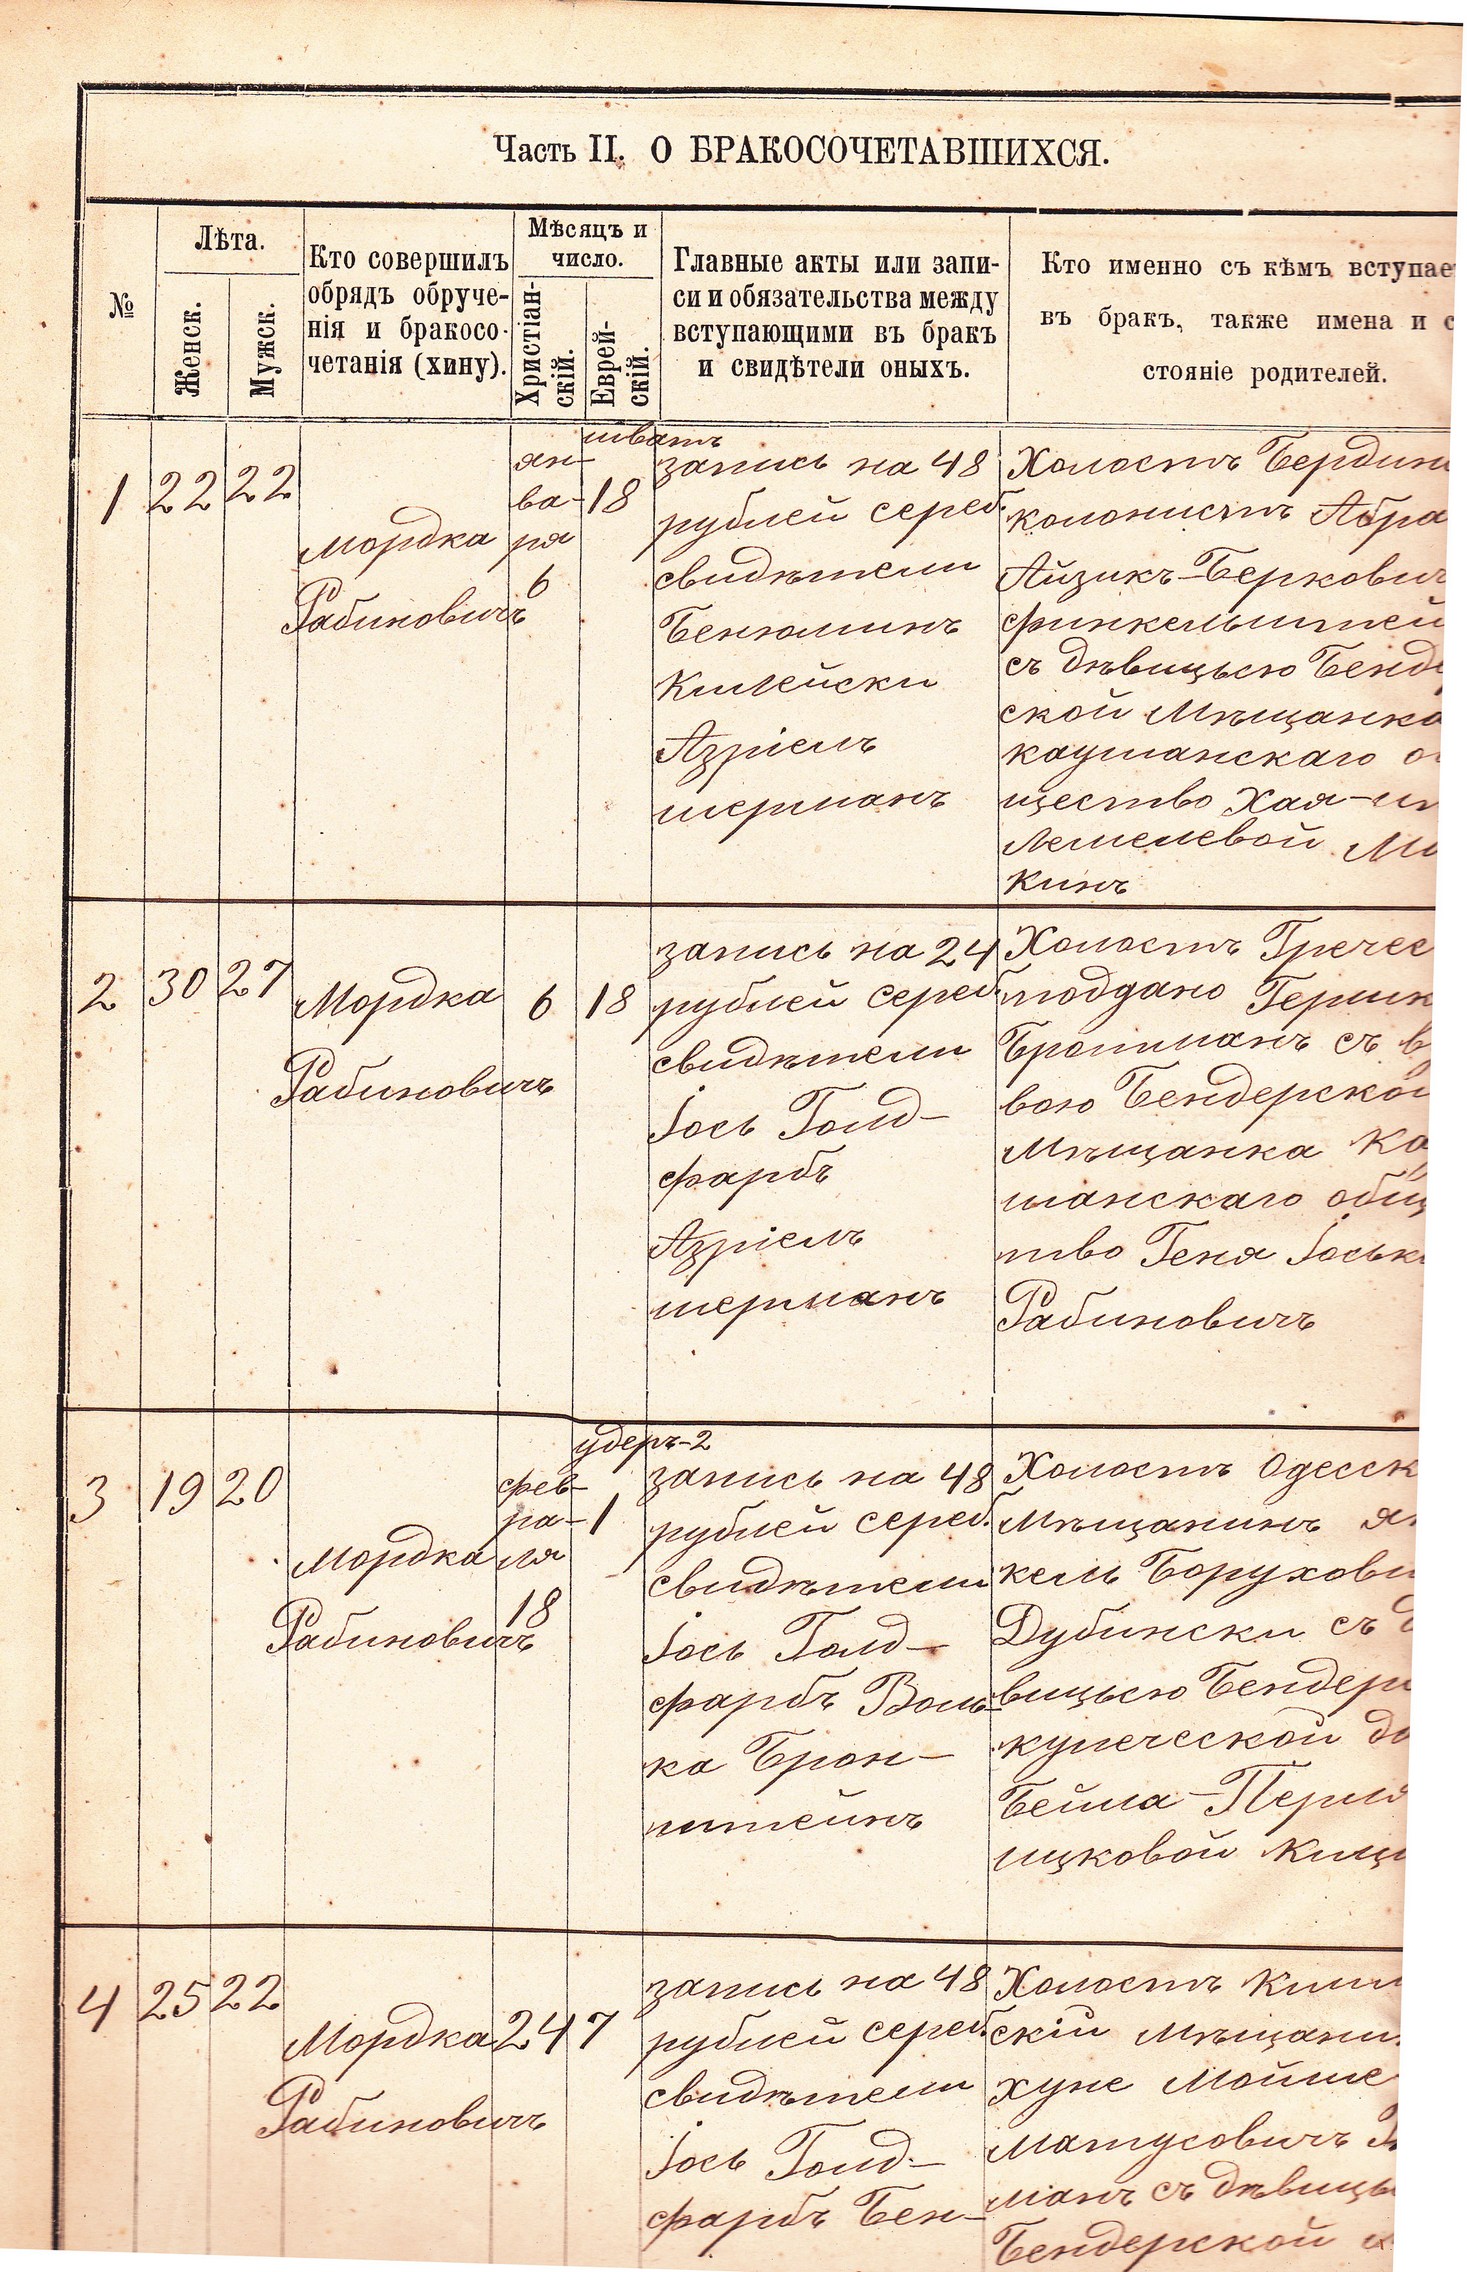 Часть II. О БРАКОСОЧЕТАВШИХСЯ.
№
Лѣта.
Женск.
Мужск.
Кто совершилъ
обрядъ обруче-
нія и бракосо-
четанія (хину).
Мѣсяцъ и
число.
Христіан-
скій.
Еврей-
скій.
Главные акты или запи-
си и обязательства между
вступающими въ бракъ
и свидѣтели оныхъ.
Кто именно съ кѣмъ вступае
въ бракъ, также имена и с
стояніе родителей.
1
22
22
Мордка
Рабиновичъ
ян-
ва-
ря
6
шватъ
18
запись на 48
рублей сереб.
свидѣтели
Бенюминъ
Азріелъ
шерманъ
Холостъ
колонистъ Абра
Айзикъ-Беркович
Финкельштей
съ дѣвицьею Бенде
ской Мѣщанка
каушанскаго об
щество Хая-
Лемелевой
кинъ
2
30
27
Мордка
Рабиновичъ
6
18
запись на 24
рублей сереб.
свидѣтели
Іось Голд-
фарбъ
Азріелъ
шерманъ
Холостъ Гречес
поддано Герш
Бротманъ съ в
вою Бендерской
Мѣщанка Ка
шанскаго общ
тво Геня Іоськ
Рабиновичъ
3
19
20
Мордка
Рабиновичъ
фев-
ра-
ля
18
удеръ-2
1
запись на 48
рублей сереб.
свидѣтели
Іось Голд-
фарбъ Воль-
ка Брон-
штейнъ
Холостъ Одесск
Мѣщанинъ Ян
кель Борухови
Дубински съ д
вицьею Бендер
купеческой до
Бейла-Перля
ицковой
4
25
22
Мордка
Рабиновичъ
24
7
запись на 48
рублей сереб.
свидѣтели
Іось Голд-
фарбъ Бен-
Холостъ Киши
скій мѣщани
хуне Мойше
Матусовичъ
манъ съ дѣвиць
Бендерской